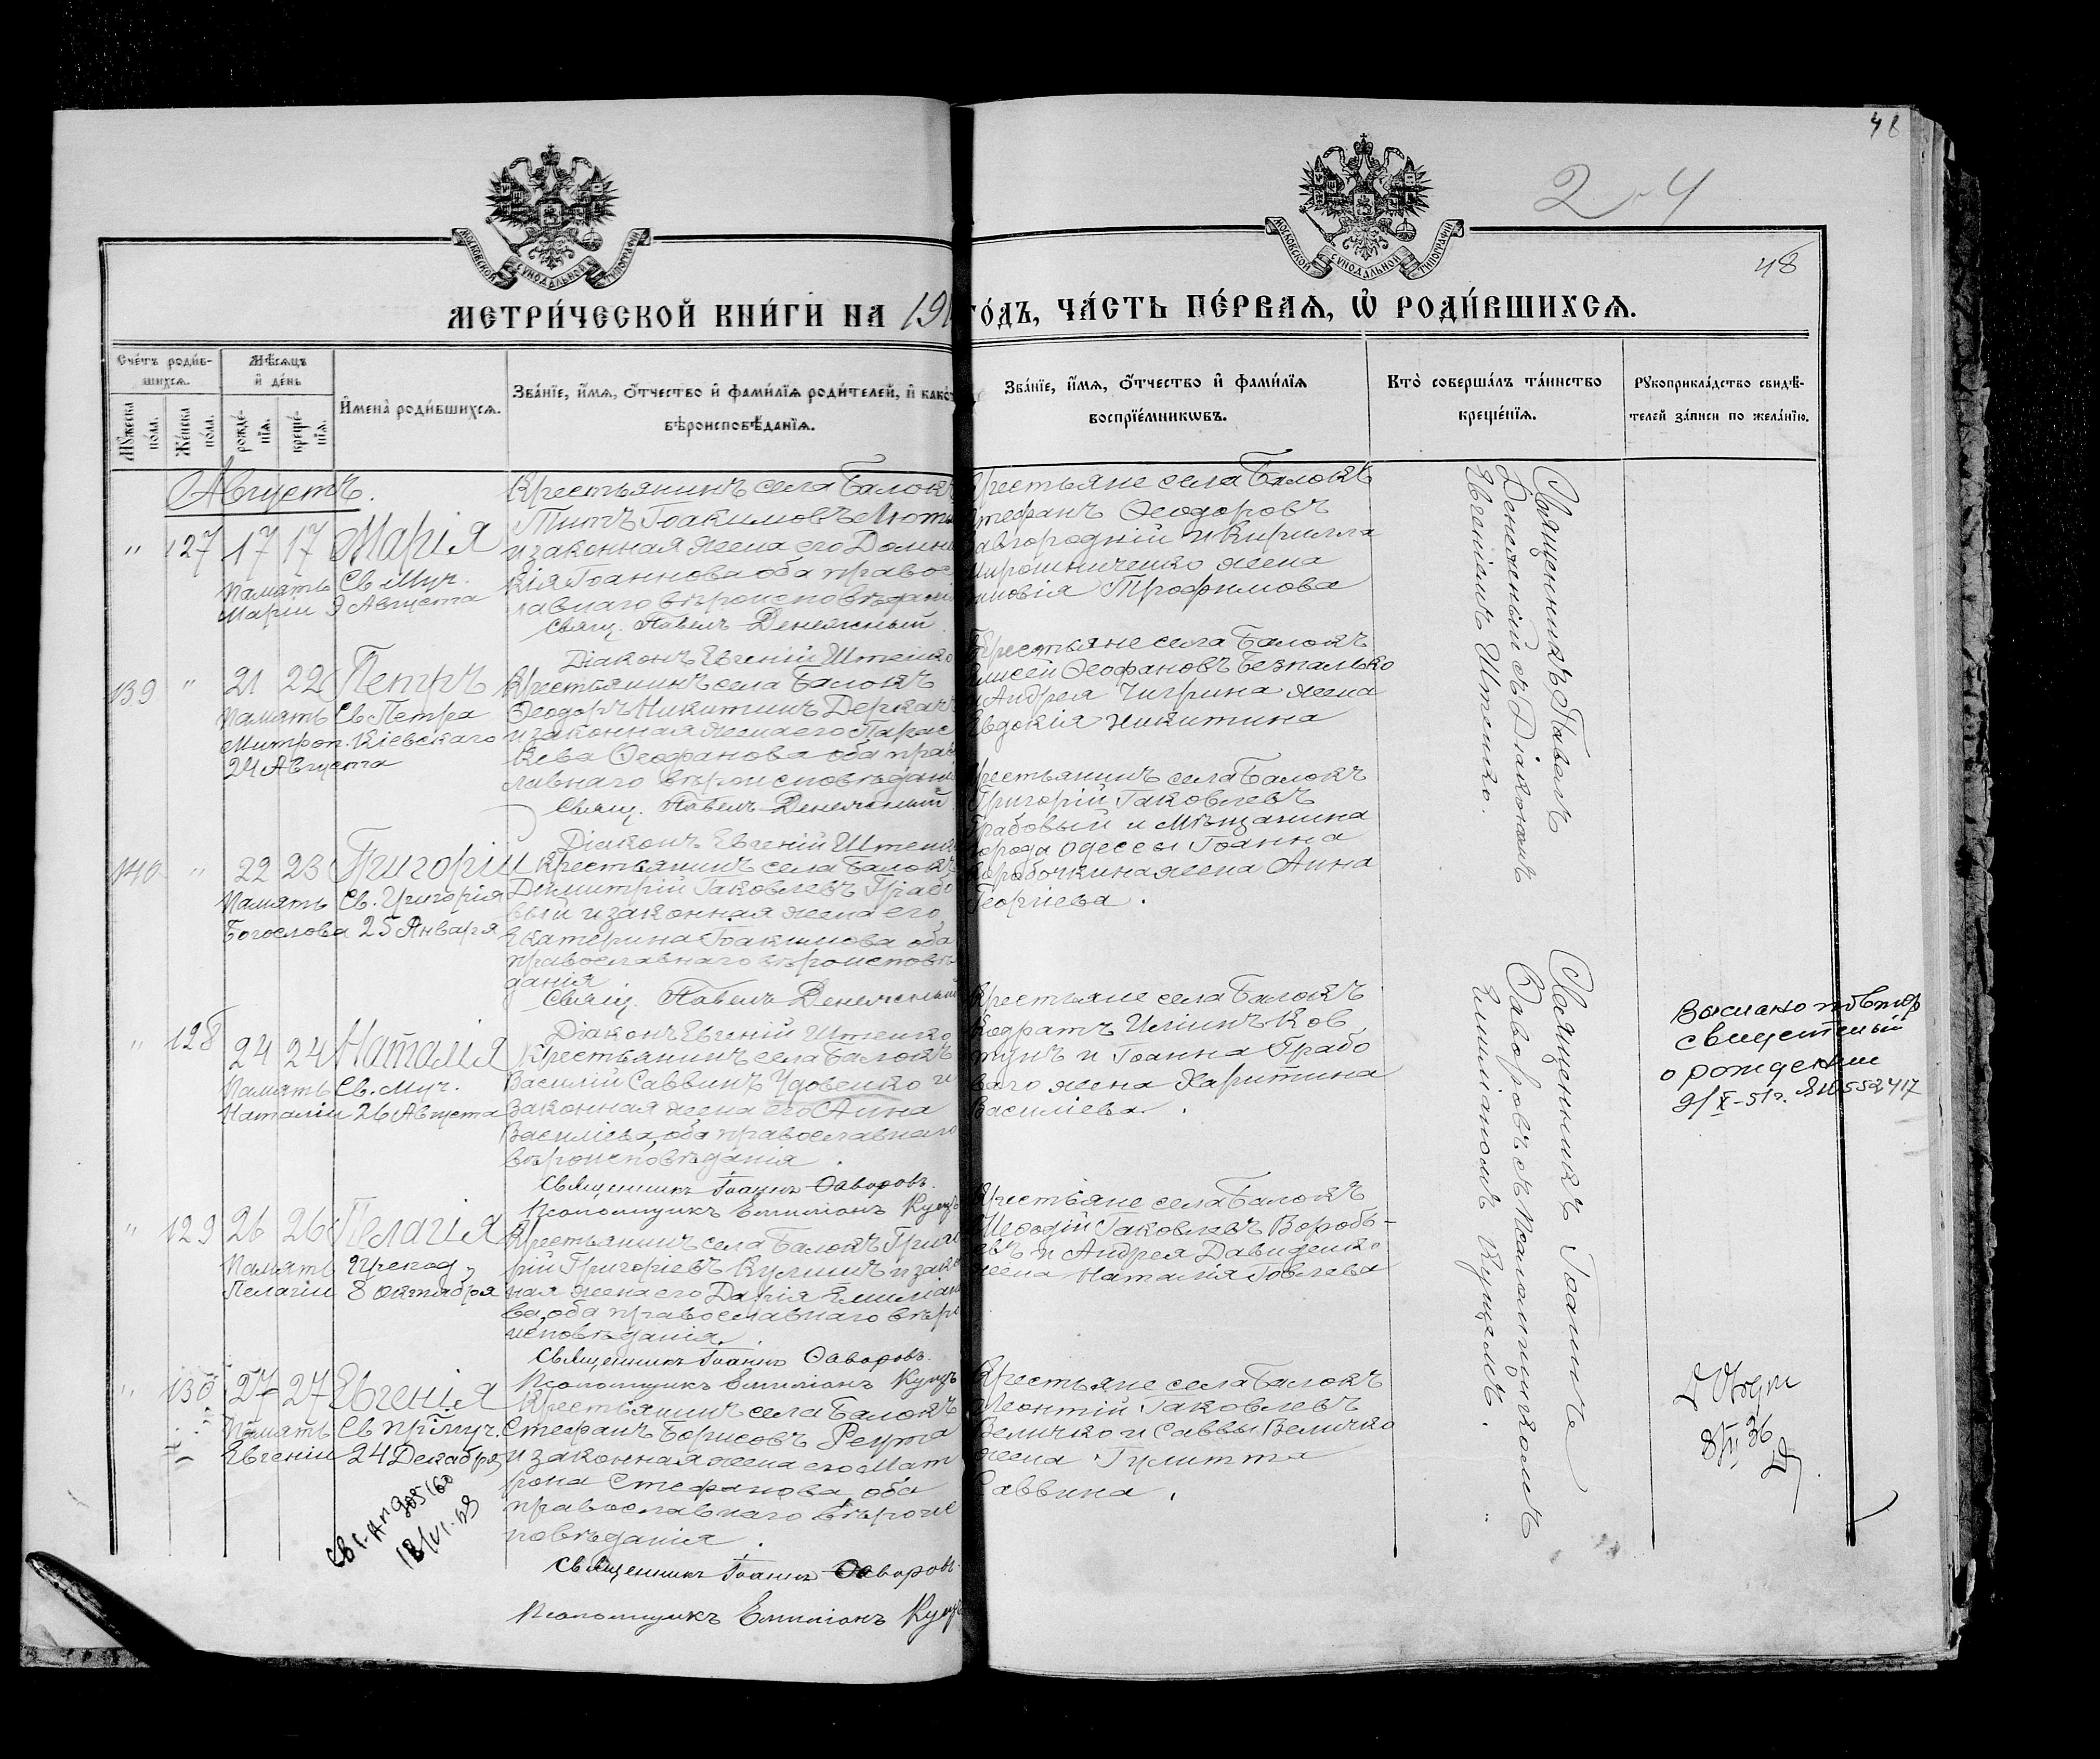 48
24
48
МОСКОВСКОЙ СУНОДАЛЬНОЙ ТИПОГРАФІИ
МОСКОВСКОЙ СУНОДАЛЬНОЙ ТИПОГРАФІИ
МЕТРИ́ЧЕСКОЙ КНИ́ГИ НА 191
ГО́ДЪ, ЧА́СТЬ ПЕ́РВАѦ, Ѡ РОДИ́ВШИХСѦ.
Сче́тъ роди́в-
шихсѧ.
Мѣ́сѧцъ
и҆ де́нь
Мꙋжеска по́ла.
Же́нска по́ла.
рожде́-нїѧ.
креще́-нїѧ.
И҆мена̀ роди́вшихсѧ.
Зва́нїе, и҆́мѧ, ѻ҆́тчество и҆ фами́лїѧ роди́телей, и҆ како́
вѣроисповѣ́данїѧ.
Зва́нїе, и҆́мѧ, ѻ҆́тчество и҆ фами́лїѧ
воспрїе́мникѡвъ.
Кто̀ соверша́лъ та́инство
креще́нїѧ.
Рꙋкоприкла́дство свидѣ́-
телей за́писи по жела́нїю.
Августъ.
" 127 17 17 Марія
Память Св. Муч.
Маріи 9 Августа
Крестьянинъ села Балокъ
Титъ Іоакимовъ Лют
и законная жена его Домни
кія Іоаннова оба правос
лавнаго вѣроисповѣдан
Свящ. Павелъ Денежный
Діаконъ Евгеній Штепко
Крестьяне села Балокъ
Стефанъ Ѳеодоровъ
Завгородній и Кирилла
Мирошниченко жена
Трофимова
139 " 21 22 Петръ
Память Св Петра
Митроп. Кіевскаго
24 Августа
Крестьянинъ села Балокъ
Ѳеодоръ Никитинъ Деркачъ
и законная жена его Парас
кева Ѳеофанова оба прав
лавнаго вѣроисповѣдан
Свящ. Павелъ Денежный
Діаконъ Евгеній Штепк
Крестьяне села Балокъ
Елисей Ѳеофановъ Безпалько
и Андрея Чигрина жена
Евдокія Никитина
140 " 22 23 Григорій
Память Св. Григорія
Богослова 25 Января
Крестьянинъ села Балокъ
Димитрій Іаковлевъ Грабо
вый и законная жена его
Екатерина Іоакимова оба
православнаго вѣроисповѣ
данія
Свящ. Павелъ Денежный
Діаконъ Евгеній Штепко
Крестьянинъ села Балокъ
Григорій Іаковлевъ
Грабовый и Мѣщанина
города Одессы Іоанна
Коробочкина жена Анна
Георгіева.
Священникъ Павелъ
Денежный съ Діакономъ
Евгеніемъ Штепко.
" 128 24 24 Наталія
Память Св. Муч.
Наталіи 26 Августа
Крестьянинъ села Балокъ
Василій Саввинъ Удовенко и
законная жена его Анна
Василіева, оба православнаго
вѣроисповѣданія.
Священникъ Іоаннъ Ѳаворовъ.
Псаломщикъ Емиліанъ Куцъ
Крестьяне села Балокъ
Кодратъ Иліинъ Ков
тунъ и Іоанна Грабо
ваго жена Харитина
Василіева.
Выслано повтор
свидетельс
о рождении
9/X-51г. 552417
" 129 26 26 Пелагія
Память Препод.
Пелагіи 8 Октября
Крестьянинъ села Балокъ Григо
рій Григорьевъ Кулишъ и закон
ная жена его Дарія Емиліано
ва, оба православнаго вѣро
исповѣданія.
Священникъ Іоаннъ Ѳаворовъ.
Псаломщикъ Емиліанъ Куцъ
Крестьяне села Балокъ
Меѳодій Іаковлевъ Воробь-
евъ и Андрея Давиденко
жена Наталія Іовлева
" 130 27 27 Евгенія
Память Св Пр. Муч.
Евгеніи 24 Декабря
Крестьянинъ села Балокъ
Стефанъ Борисовъ Реута
и законная жена его Мат
рона Стефанова, оба
православнаго вѣроис
повѣданія.
Священникъ Іоаннъ Ѳаворовъ.
Псаломщикъ Емиліанъ Куцъ
Крестьяне села Балокъ
Леонтій Іаковлевъ
Величко и Саввы Величко
жена Іулитта
Саввина.
Священникъ Іоаннъ
Ѳаворовъ съ Псаломщикомъ
Емиліаномъ Куцемъ.